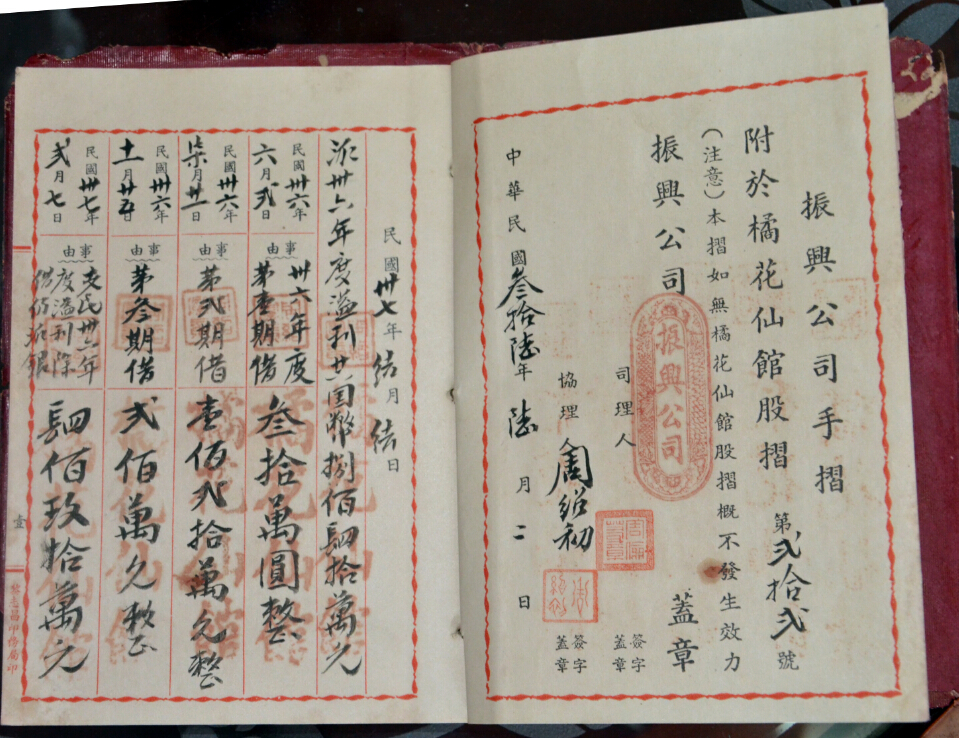 振興公司手摺
附於橘花仙館股摺第弍拾弍號
（注意）本摺如無橘花仙館股摺概不發生效力
振興公司 蓋章
振興公司
司理人 簽字蓋章
協理 周紹初 簽字蓋章
中華民國叁拾陆年陆月二日
民國卅七年结月结日
派卅六年度溢利廿一国幣捌佰肆拾萬元
民國卅六年六月弍日
事由
卅六年度第壹期借
叁拾萬圓整
民國卅六年柒月廿一日
事由
第弍期借
壹佰弍拾萬元整
民國卅六年十一月廿五日
事由
第叁期借
弍佰萬元整
民國卅七年弍月七日
事由
度溢利除
肆佰玖拾萬元
壹